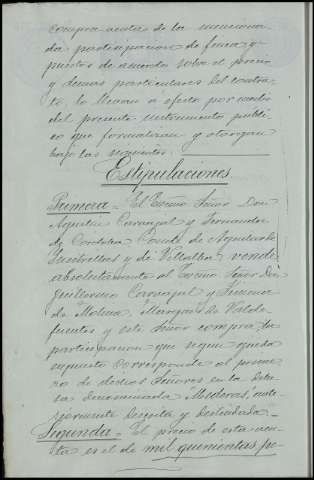 compra venta de la menciona-
da participacion de finca y
puestos de acuerdo sobre el precio
y demas particulares del contra-
to, lo llevan á efecto por medio
del presente instrumento públi-
co que formalizan y otorgan
bajo las siguientes:
Estipulaciones
Primera = El Excmo Señor Don
Agustin Carvajal y Fernandez
de Cordoba Conde de Aguilar de
Inestrillas y de Villalba, vende
absolutamente al Excmo Señor Don
Guillermo Carvajal y
de Molina, Marqués de Valde-
fuentes y este Señor compra la
participacion que segun queda
expuesto corresponde al prime-
ro de dichos Señores en la dehe-
sa denominada "Mederas", ante-
riormente descrita y deslindada.
Segunda = El precio de esta ven-
ta es el de mil quinientas pe-